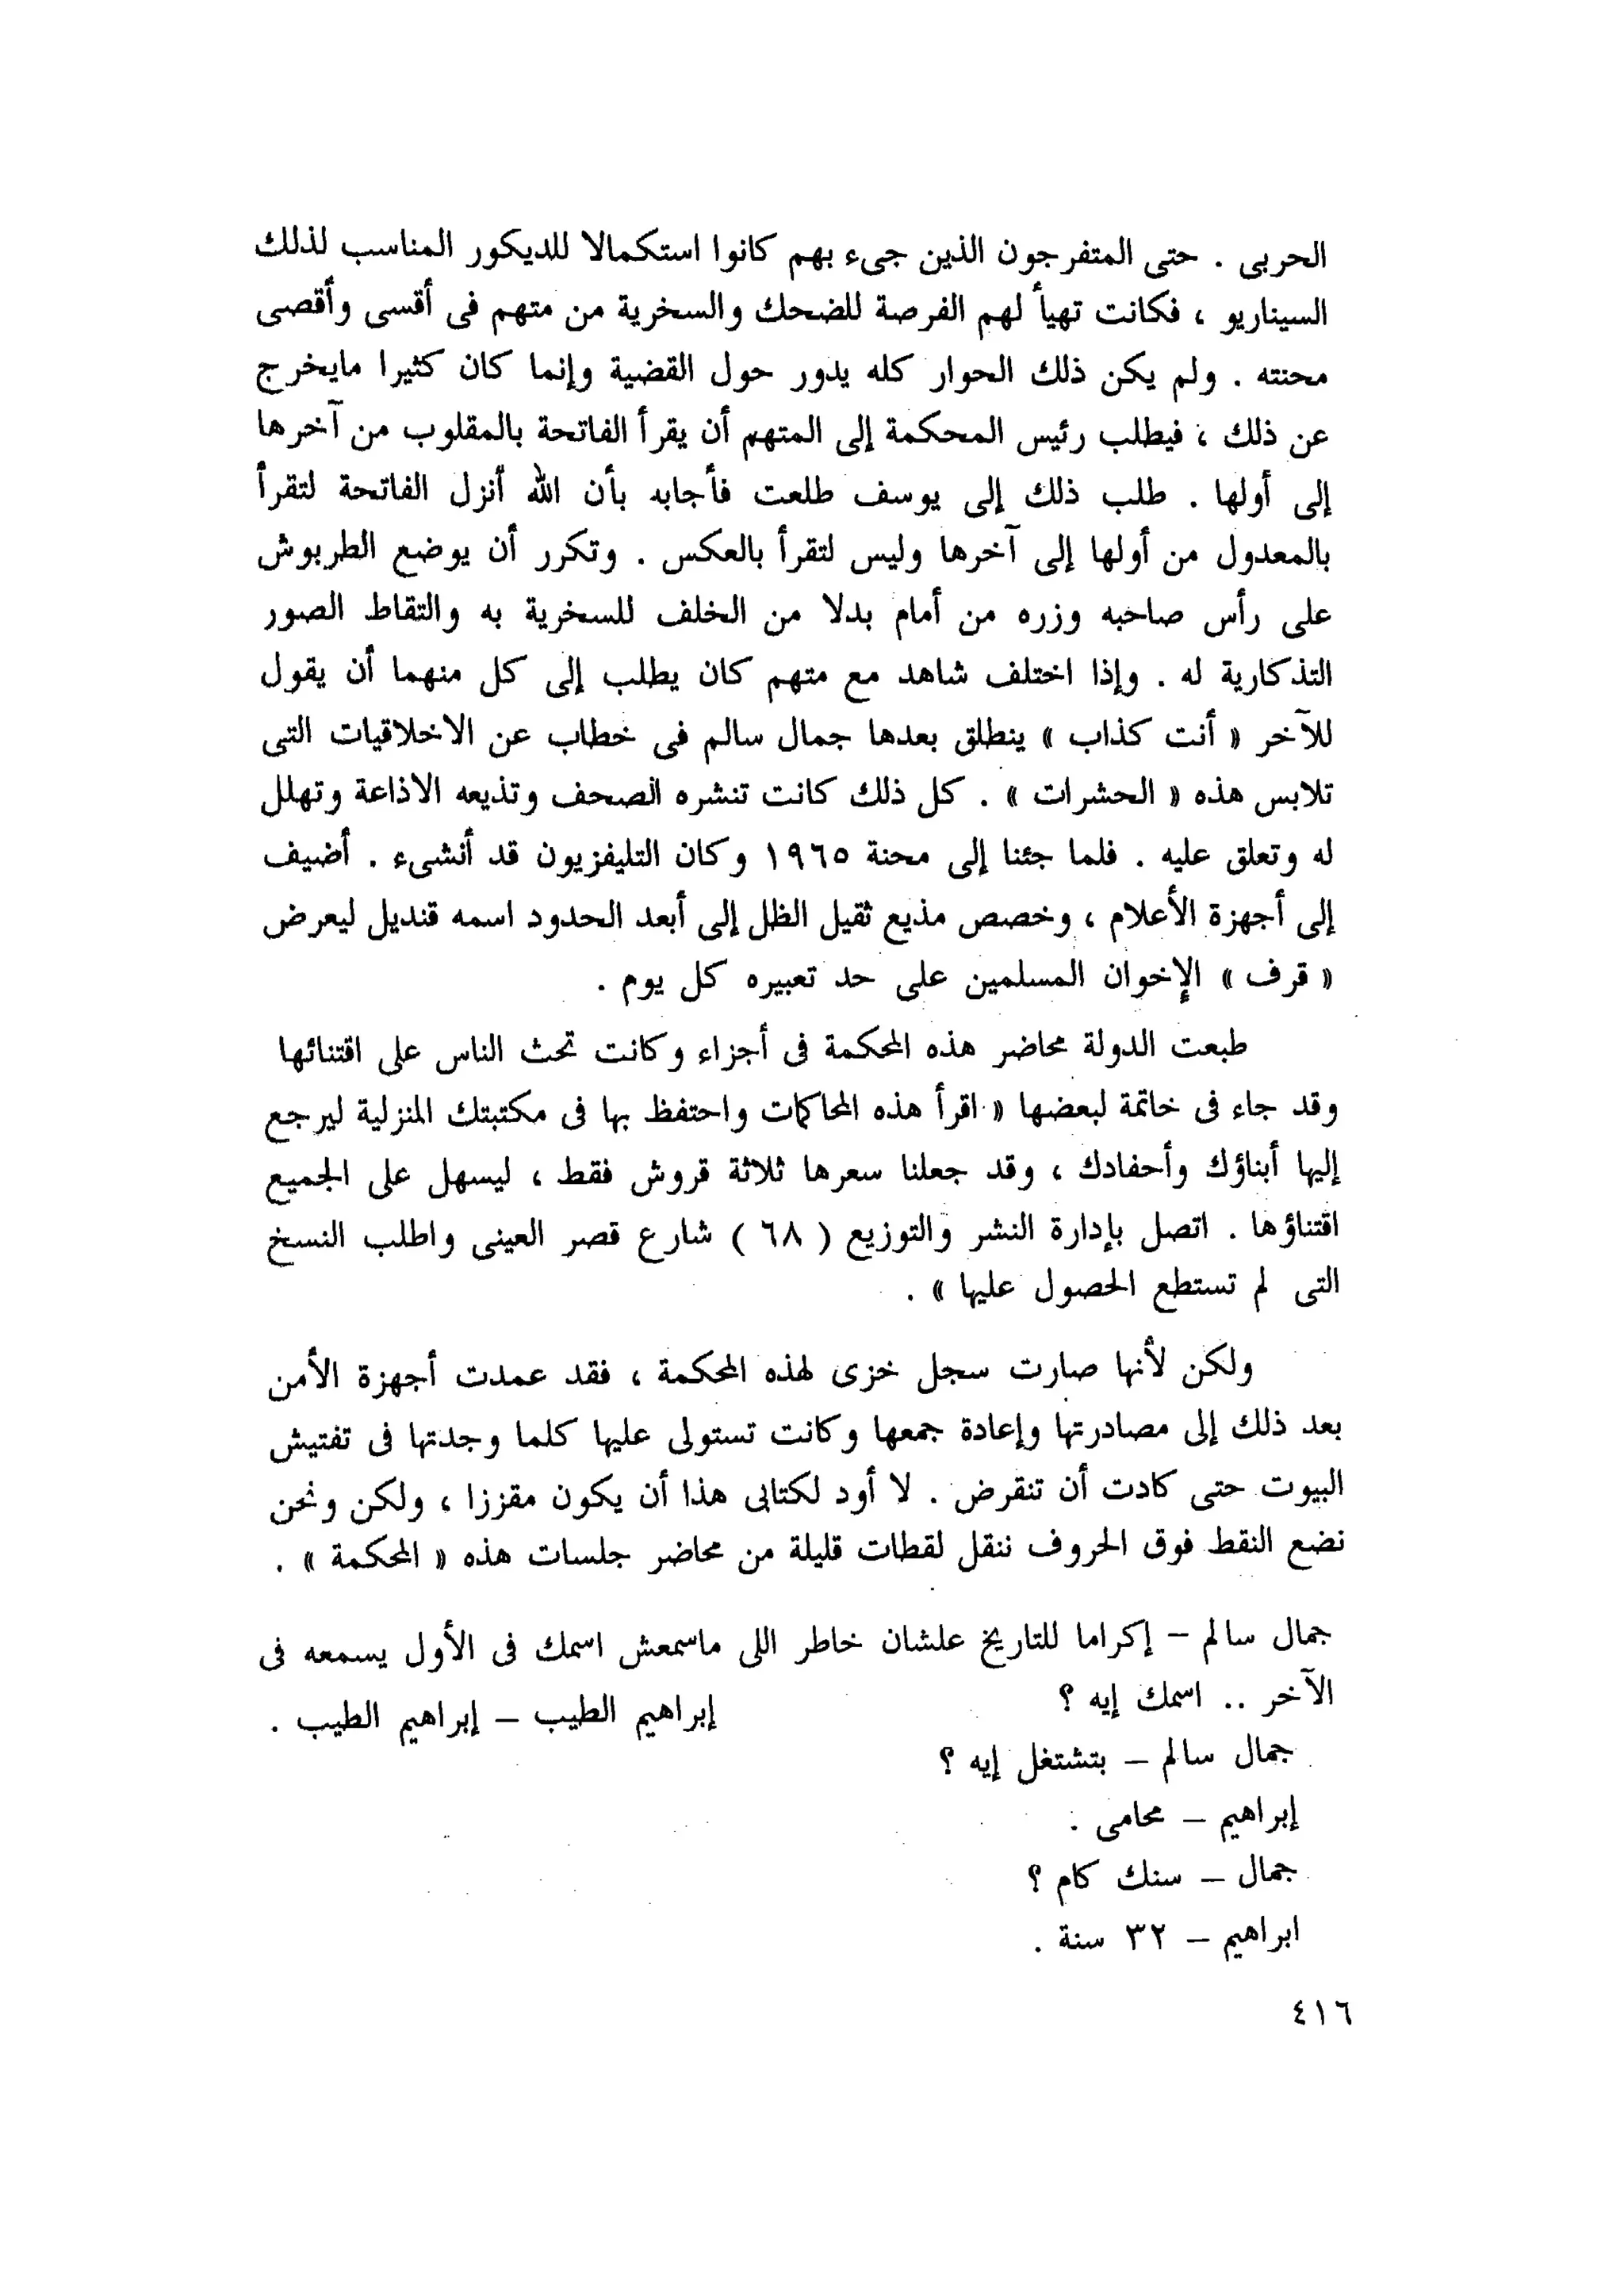 الحربى . حتى المتفرجون الذين جىء بهم كانوا استكمالا للديكور المناسب لذلك
السيناريو ، فكانت تهيأ لهم الفرصة للضحك والسخرية من متهم فى أقسى وأقصى
محنته . ولم يكن ذلك الحوار كله يدور حول القضية وإنما كان كثيرا مايخرج
عن ذلك ، فيطلب رئيس المحكمة إلى المتهم أن يقرأ الفاتحة بالمقلوب من آخرها
إلى أولها . طلب ذلك إلى يوسف طلعت فأجابه بأن الله أنزل الفاتحة لتقرأ
بالمعدول من أولها إلى آخرها وليس لتقرأ بالعكس . وتكرر أن يوضع الطربوش
على رأس صاحبه وزره من أمام بدلا من الخلف للسخرية به والتقاط الصور
التذكارية له . وإذا اختلف شاهد مع متهم كان يطلب إلى كل منهما أن يقول
للآخر « أنت كذاب » ينطلق بعدها جمال سالم فى خطاب عن الاخلاقيات التى
تلابس هذه « الحشرات » . كل ذلك كانت تنشره الصحف وتذيعه الاذاعة وتهلل
له وتعلق عليه . فلما جئنا إلى محنة ١٩٦٥ وكان التليفزيون قد أنشىء . أضيف
إلى أجهزة الأعلام ، وخصص مذيع ثقيل الظل إلى أبعد الحدود اسمه قنديل ليعرض
« قرف » الإخوان المسلمين على حد تعبيره كل يوم .
طبعت الدولة محاضر هذه المحكمة فى أجزاء وكانت تحث الناس على اقتنائها
وقد جاء فى خاتمة لبعضها « اقرأ هذه المحاكمات واحتفظ بها فى مكتبتك المنزلية ليرجع
إليها أبناؤك وأحفادك ، وقد جعلنا سعرها ثلاثة قروش فقط ، ليسهل على الجميع
اقتناؤها . اتصل بإدارة النشر والتوزيع ( ٦٨ ) شارع قصر العينى واطلب النسخ
التى لم تستطع الحصول عليها » .
ولكن لأنها صارت سجل خزى لهذه المحكمة ، فقد عمدت أجهزة الأمن
بعد ذلك إلى مصادرتها وإعادة جمعها وكانت تستولى عليها كلما وجدتها فى تفتيش
البيوت حتى كادت أن تنقرض . لا أود لكتابى هذا أن يكون مقززا ، ولكن ونحن
نضع النقط فوق الحروف ننقل لقطات قليلة من محاضر جلسات هذه « المحكمة » .
جمال سالم – إكراما للتاريخ علشان خاطر اللى ماسمعش اسمك فى الأول يسمعه فى
الآخر .. اسمك إيه ؟
إبراهيم الطيب – إبراهيم الطيب .
جمال سالم – بتشتغل إيه ؟
إبراهيم – محامى .
جمال – سنك كام ؟
ابراهيم – ٣٢ سنة .
٤١٦